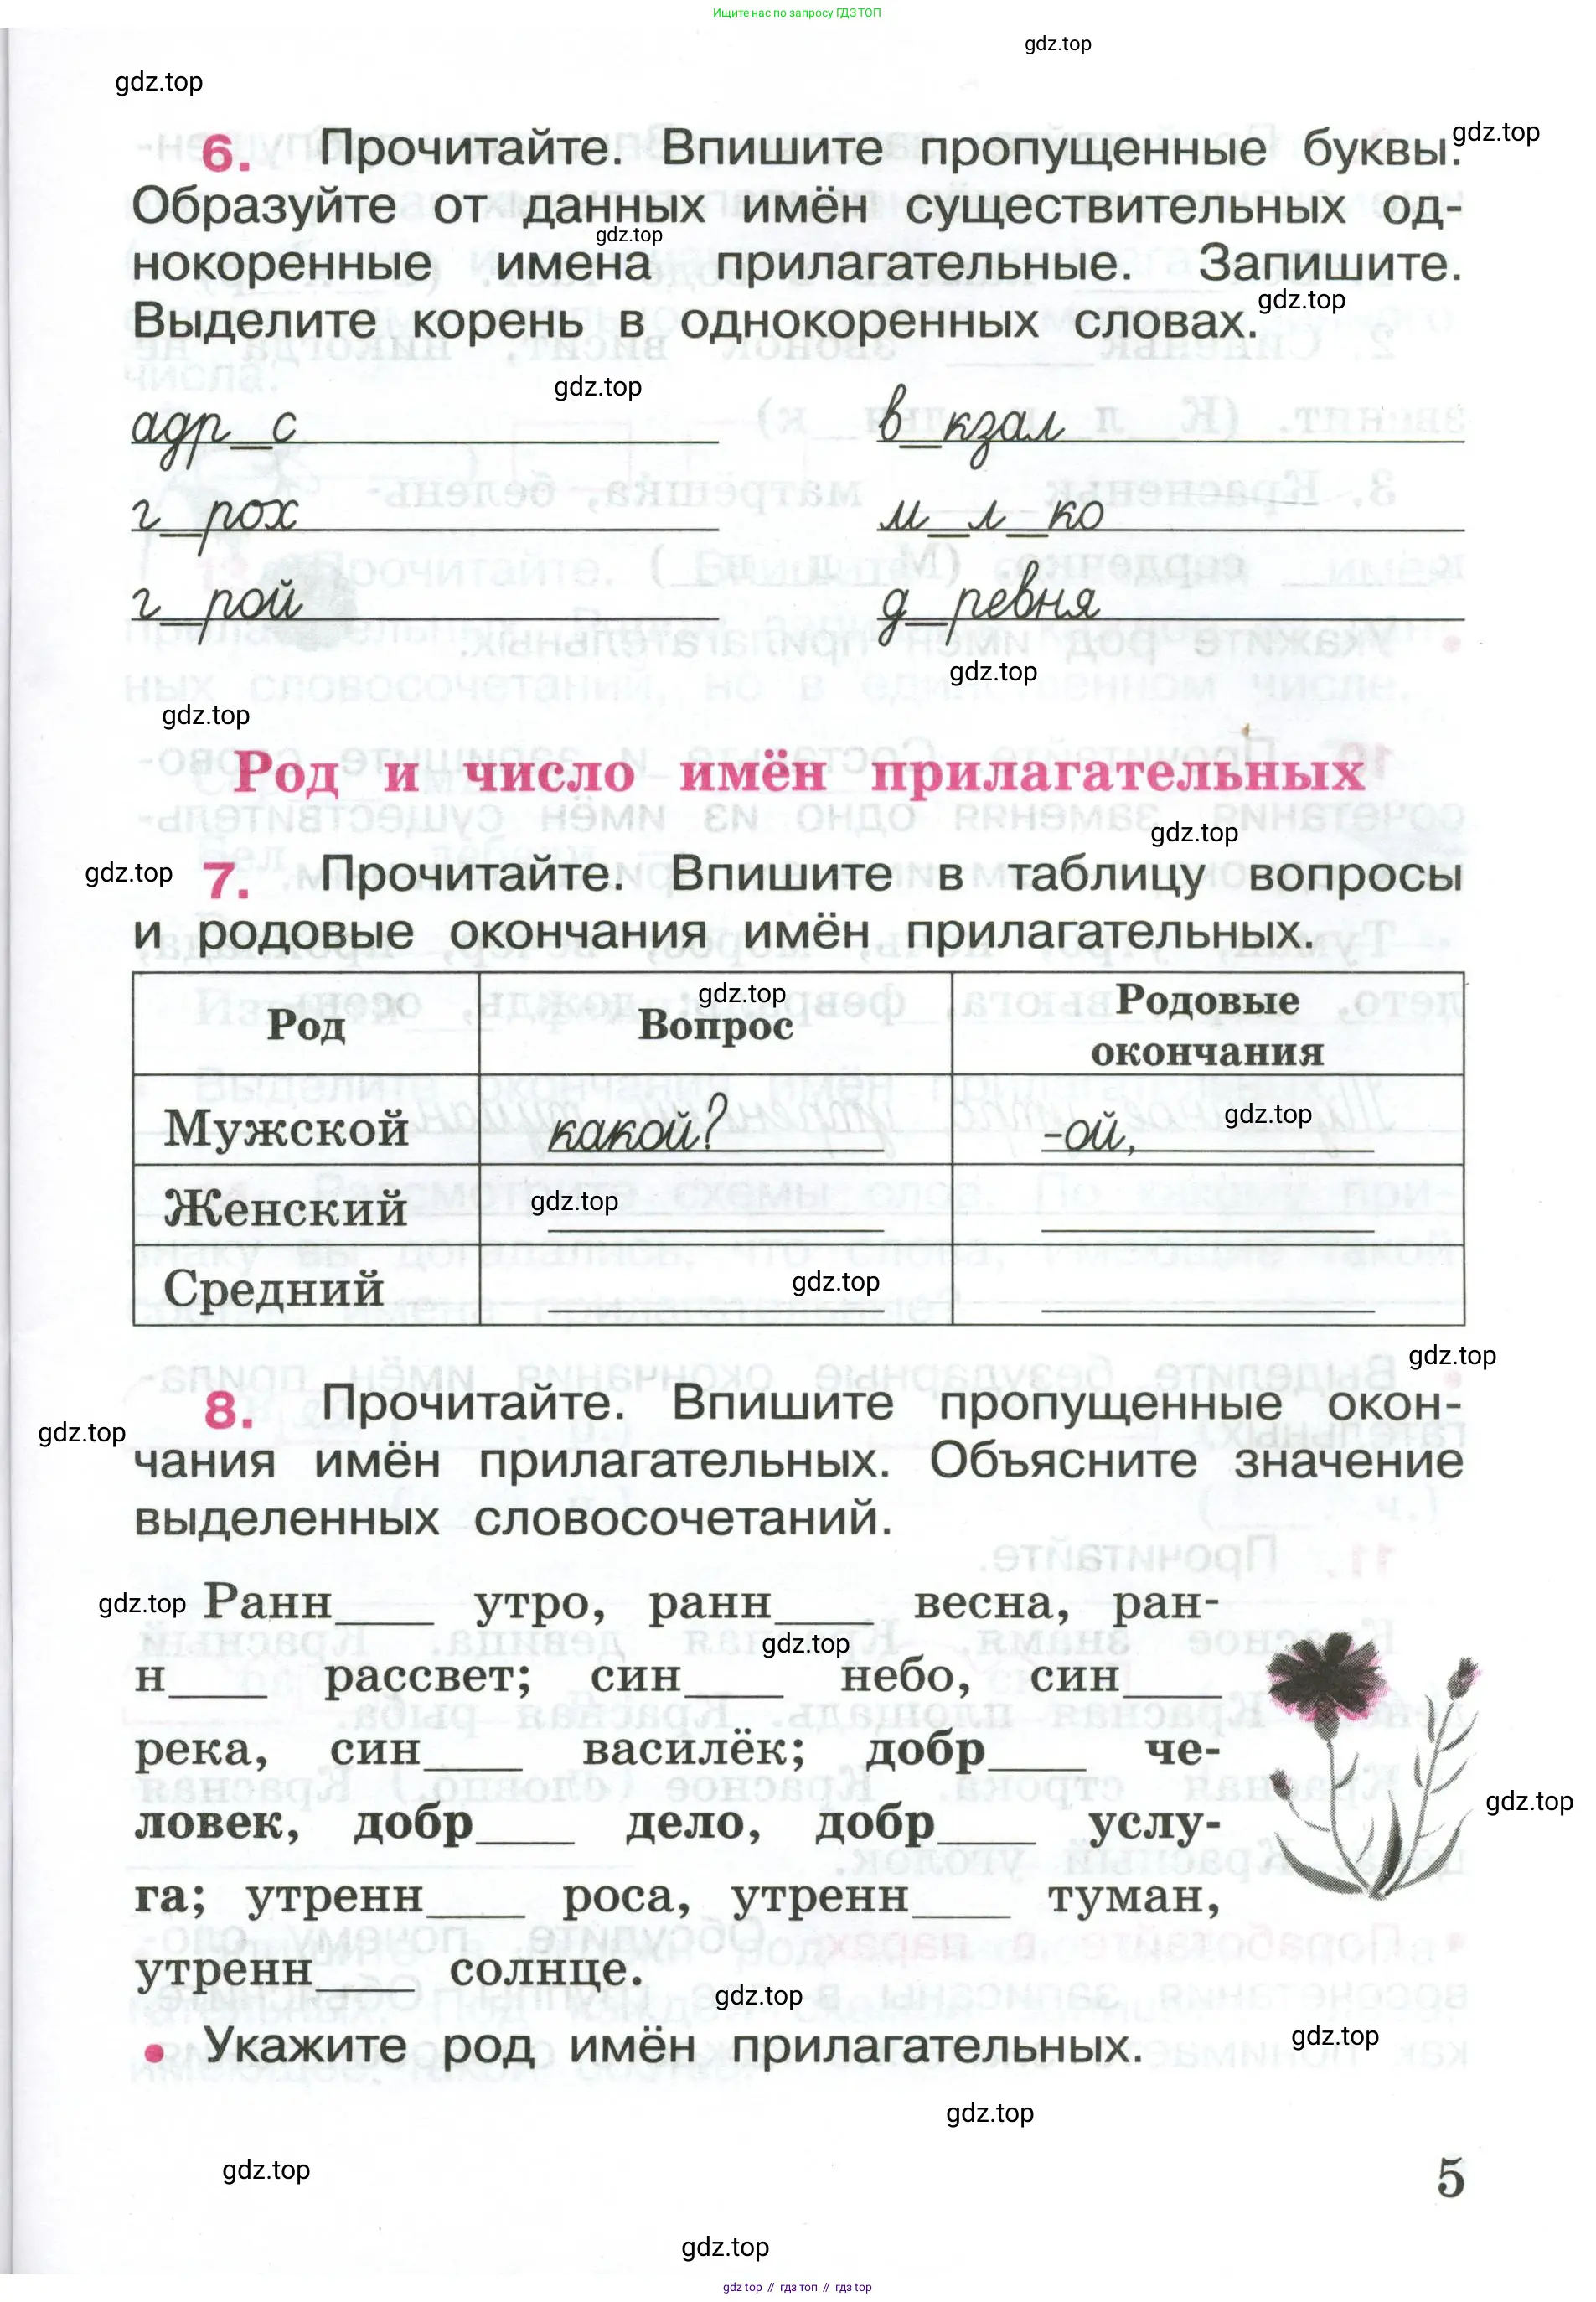 Ищите нас по запросу ГДЗ ТОП
gdz.top
gdz.top
6. Прочитайте. Впишите пропущенные буквы. gdz.top
Образуйте от данных имён существительных од-
gdz.top
нокоренные имена прилагательные. Запишите.
gdz.top
Выделите корень в однокоренных словах.
gdz.top
адр__с в__кзал
г__рох м__л__ко
г__рой д__ревня
gdz.top
gdz.top
Род и число имён прилагательных
gdz.top
gdz.top 7. Прочитайте. Впишите в таблицу вопросы
и родовые окончания имён прилагательных.
gdz.top
Род Вопрос Родовые
окончания
Мужской какой? -ой, gdz.top
Женский gdz.top
Средний gdz.top
gdz.top
8. Прочитайте. Впишите пропущенные окон-
gdz.top
чания имён прилагательных. Объясните значение
выделенных словосочетаний.
gdz.top Ранн____ утро, ранн____ весна, ран-
gdz.top
н____ рассвет; син____ небо, син____
река, син____ василёк; добр____ че-
gdz.top
ловек, добр____ дело, добр____ услу-
га; утренн____ роса, утренн____ туман,
утренн____ солнце.
gdz.top
gdz.top
• Укажите род имён прилагательных.
gdz.top
gdz.top
5
gdz.top
gdz top // гдз топ // гдз top